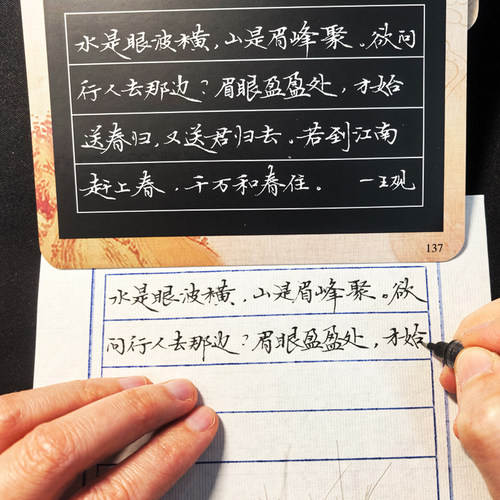 水是眼波横，山是眉峰聚。欲问
行人去那边？眉眼盈盈处，才始
送春归，又送君归去。若到江南
赶上春，千万和春住。 一王观
137
水是眼波横，山是眉峰聚。欲
问行人去那边？眉眼盈盈处，才始